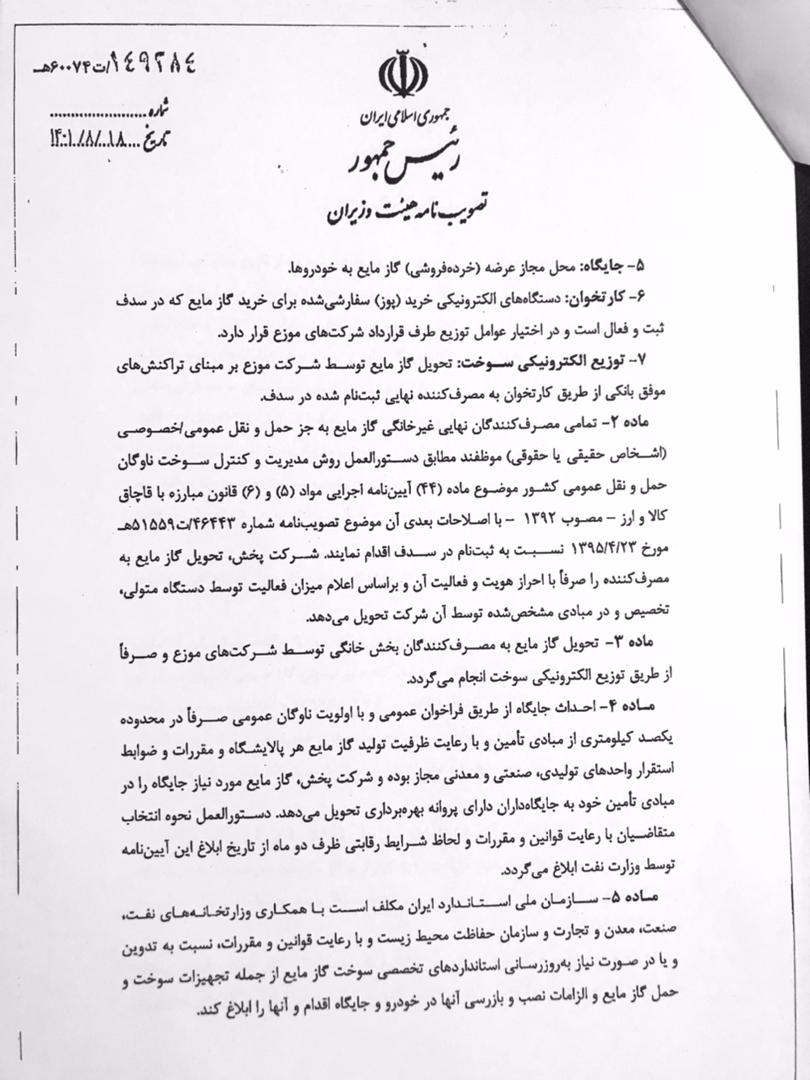 ۱۴۹۲۸۴/ت۶۰۰۷۴هـ
شماره
تاریخ ۱۴۰۱/۸/۱۸
جمهوری اسلامی ایران
رئیس جمهور
تصویب نامه هیئت وزیران
۵- جایگاه: محل مجاز عرضه (خرده‌فروشی) گاز مایع به خودروها.
۶- کارتخوان: دستگاه‌های الکترونیکی خرید (پوز) سفارشی‌شده برای خرید گاز مایع که در سدف
ثبت و فعال است و در اختیار عوامل توزیع طرف قرارداد شرکت‌های موزع قرار دارد.
۷- توزیع الکترونیکی سوخت: تحویل گاز مایع توسط شرکت موزع بر مبنای تراکنش‌های
موفق بانکی از طریق کارتخوان به مصرف‌کننده نهایی ثبت‌نام شده در سدف.
ماده ۲- تمامی مصرف‌کنندگان نهایی غیرخانگی گاز مایع به جز حمل و نقل عمومی/خصوصی
(اشخاص حقیقی یا حقوقی) موظفند مطابق دستورالعمل روش مدیریت و کنترل سوخت ناوگان
حمل و نقل عمومی کشور موضوع ماده (۴۴) آیین‌نامه اجرایی مواد (۵) و (۶) قانون مبارزه با قاچاق
کالا و ارز - مصوب ۱۳۹۲ - با اصلاحات بعدی آن موضوع تصویب‌نامه شماره ۴۶۴۴۳/ت۵۱۵۵۹هـ
مورخ ۱۳۹۵/۴/۲۳ نسبت به ثبت‌نام در سدف اقدام نمایند. شرکت پخش، تحویل گاز مایع به
مصرف‌کننده را صرفاً با احراز هویت و فعالیت آن و براساس اعلام میزان فعالیت توسط دستگاه متولی،
تخصیص و در مبادی مشخص‌شده توسط آن شرکت تحویل می‌دهد.
ماده ۳- تحویل گاز مایع به مصرف‌کنندگان بخش خانگی توسط شرکت‌های موزع و صرفاً
از طریق توزیع الکترونیکی سوخت انجام می‌گردد.
ماده ۴- احداث جایگاه از طریق فراخوان عمومی و با اولویت ناوگان عمومی صرفاً در محدوده
یکصد کیلومتری از مبادی تأمین و با رعایت ظرفیت تولید گاز مایع هر پالایشگاه و مقررات و ضوابط
استقرار واحدهای تولیدی، صنعتی و معدنی مجاز بوده و شرکت پخش، گاز مایع مورد نیاز جایگاه را در
مبادی تأمین خود به جایگاه‌داران دارای پروانه بهره‌برداری تحویل می‌دهد. دستورالعمل نحوه انتخاب
متقاضیان با رعایت قوانین و مقررات و لحاظ شرایط رقابتی ظرف دو ماه از تاریخ ابلاغ این آیین‌نامه
توسط وزارت نفت ابلاغ می‌گردد.
ماده ۵- سازمان ملی استاندارد ایران مکلف است با همکاری وزارتخانه‌های نفت،
صنعت، معدن و تجارت و سازمان حفاظت محیط زیست و با رعایت قوانین و مقررات، نسبت به تدوین
و یا در صورت نیاز به‌روزرسانی استانداردهای تخصصی سوخت گاز مایع از جمله تجهیزات سوخت و
حمل گاز مایع و الزامات نصب و بازرسی آنها در خودرو و جایگاه اقدام و آنها را ابلاغ کند.